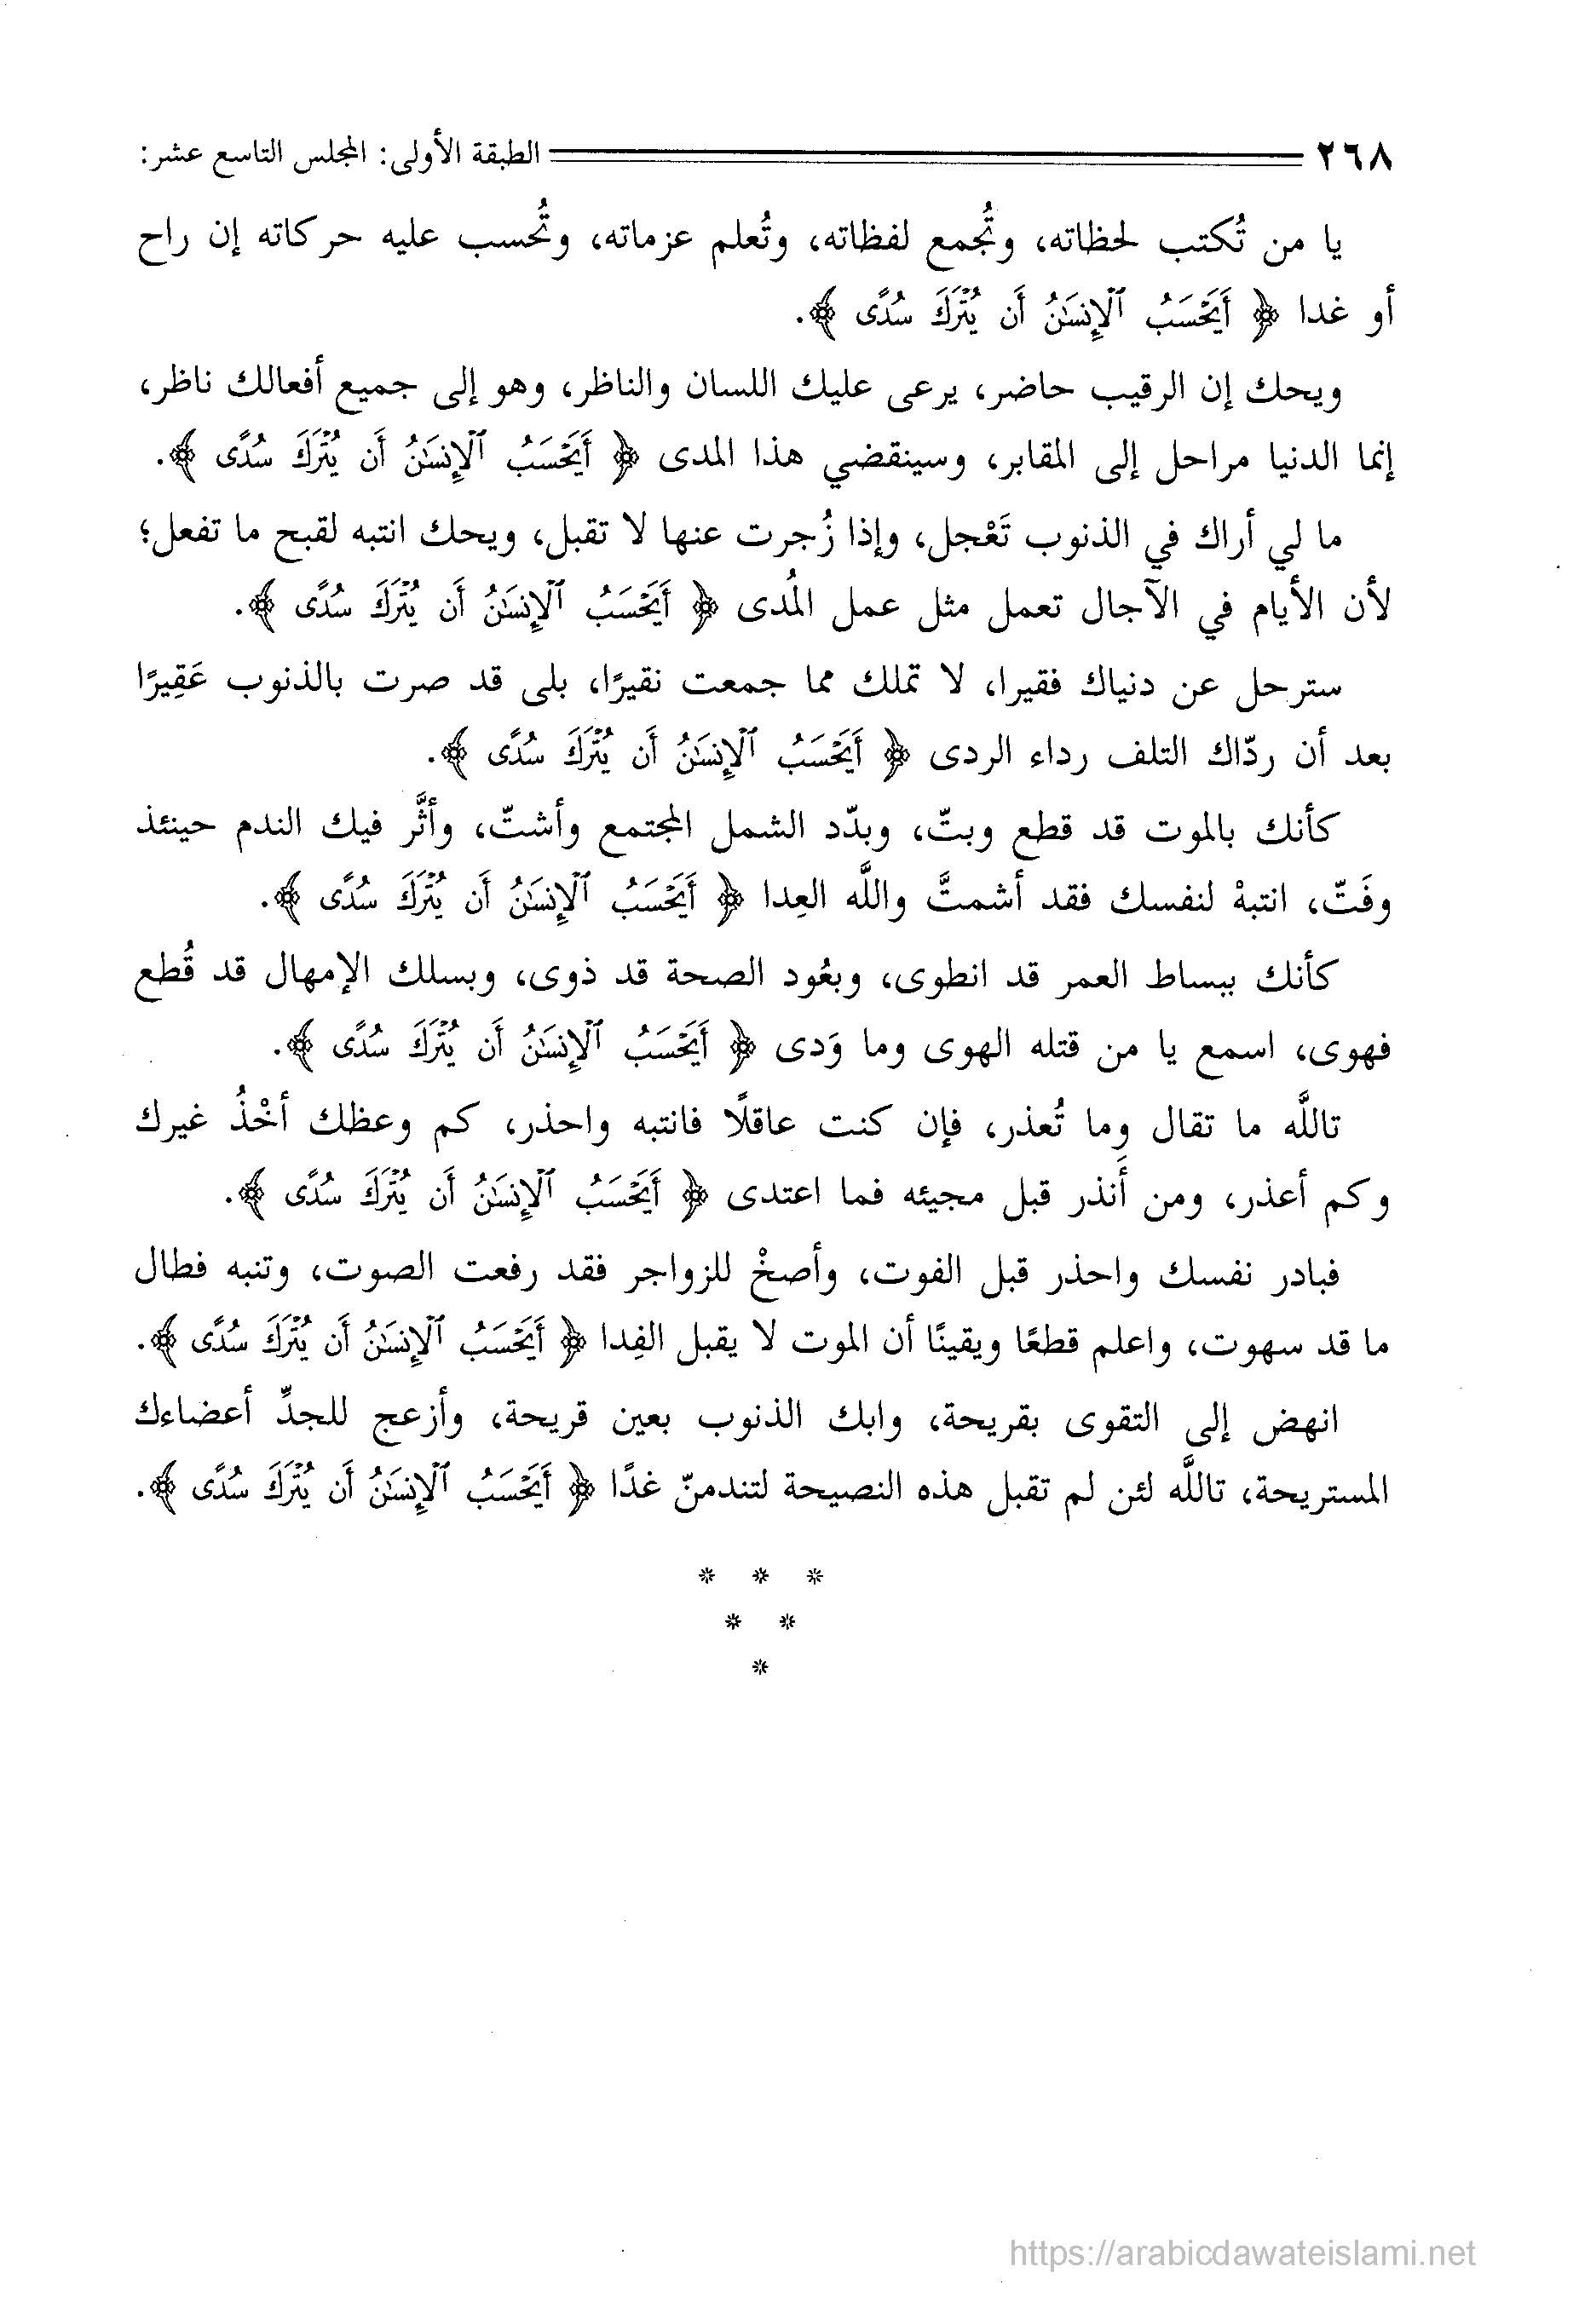 ٢٦٨ الطبقة الأولى: المجلس التاسع عشر:
يا من تُكتب لحظاته، وتُجمع لفظاته، وتُعلم عزماته، وتُحسب عليه حركاته إن راح
أو غدا ﴿ أَيَحْسَبُ ٱلْإِنسَٰنُ أَن يُتْرَكَ سُدًى ﴾.
ويحك إن الرقيب حاضر، يرعى عليك اللسان والناظر، وهو إلى جميع أفعالك ناظر،
إنما الدنيا مراحل إلى المقابر، وسينقضي هذا المدى ﴿ أَيَحْسَبُ ٱلْإِنسَٰنُ أَن يُتْرَكَ سُدًى ﴾.
ما لي أراك في الذنوب تَعْجل، وإذا زُجرت عنها لا تقبل، ويحك انتبه لقبح ما تفعل؛
لأن الأيام في الآجال تعمل مثل عمل المُدى ﴿ أَيَحْسَبُ ٱلْإِنسَٰنُ أَن يُتْرَكَ سُدًى ﴾.
سترحل عن دنياك فقيرا، لا تملك مما جمعت نقيرًا، بلى قد صرت بالذنوب عَقِيرًا
بعد أن ردّاك التلف رداء الردى ﴿ أَيَحْسَبُ ٱلْإِنسَٰنُ أَن يُتْرَكَ سُدًى ﴾.
كأنك بالموت قد قطع وبتّ، وبدّد الشمل المجتمع وأشتّ، وأثَّر فيك الندم حينئذ
وفَتّ، انتبهْ لنفسك فقد أشمتَّ واللَّه العِدا ﴿ أَيَحْسَبُ ٱلْإِنسَٰنُ أَن يُتْرَكَ سُدًى ﴾.
كأنك ببساط العمر قد انطوى، وبعُود الصحة قد ذوى، وبسلك الإمهال قد قُطع
فهوى، اسمع يا من قتله الهوى وما وَدى ﴿ أَيَحْسَبُ ٱلْإِنسَٰنُ أَن يُتْرَكَ سُدًى ﴾.
تاللَّه ما تقال وما تُعذر، فإن كنت عاقلًا فانتبه واحذر، كم وعظك أخْذُ غيرك
وكم أعذر، ومن أَنذر قبل مجيئه فما اعتدى ﴿ أَيَحْسَبُ ٱلْإِنسَٰنُ أَن يُتْرَكَ سُدًى ﴾.
فبادر نفسك واحذر قبل الفوت، وأصخْ للزواجر فقد رفعت الصوت، وتنبه فطال
ما قد سهوت، واعلم قطعًا ويقينًا أن الموت لا يقبل الفِدا ﴿ أَيَحْسَبُ ٱلْإِنسَٰنُ أَن يُتْرَكَ سُدًى ﴾.
انهض إلى التقوى بقريحة، وابك الذنوب بعين قريحة، وأزعج للجدِّ أعضاءك
المستريحة، تاللَّه لئن لم تقبل هذه النصيحة لتندمنّ غدًا ﴿ أَيَحْسَبُ ٱلْإِنسَٰنُ أَن يُتْرَكَ سُدًى ﴾.
* * *
* *
*
https://arabicdawateislami.net